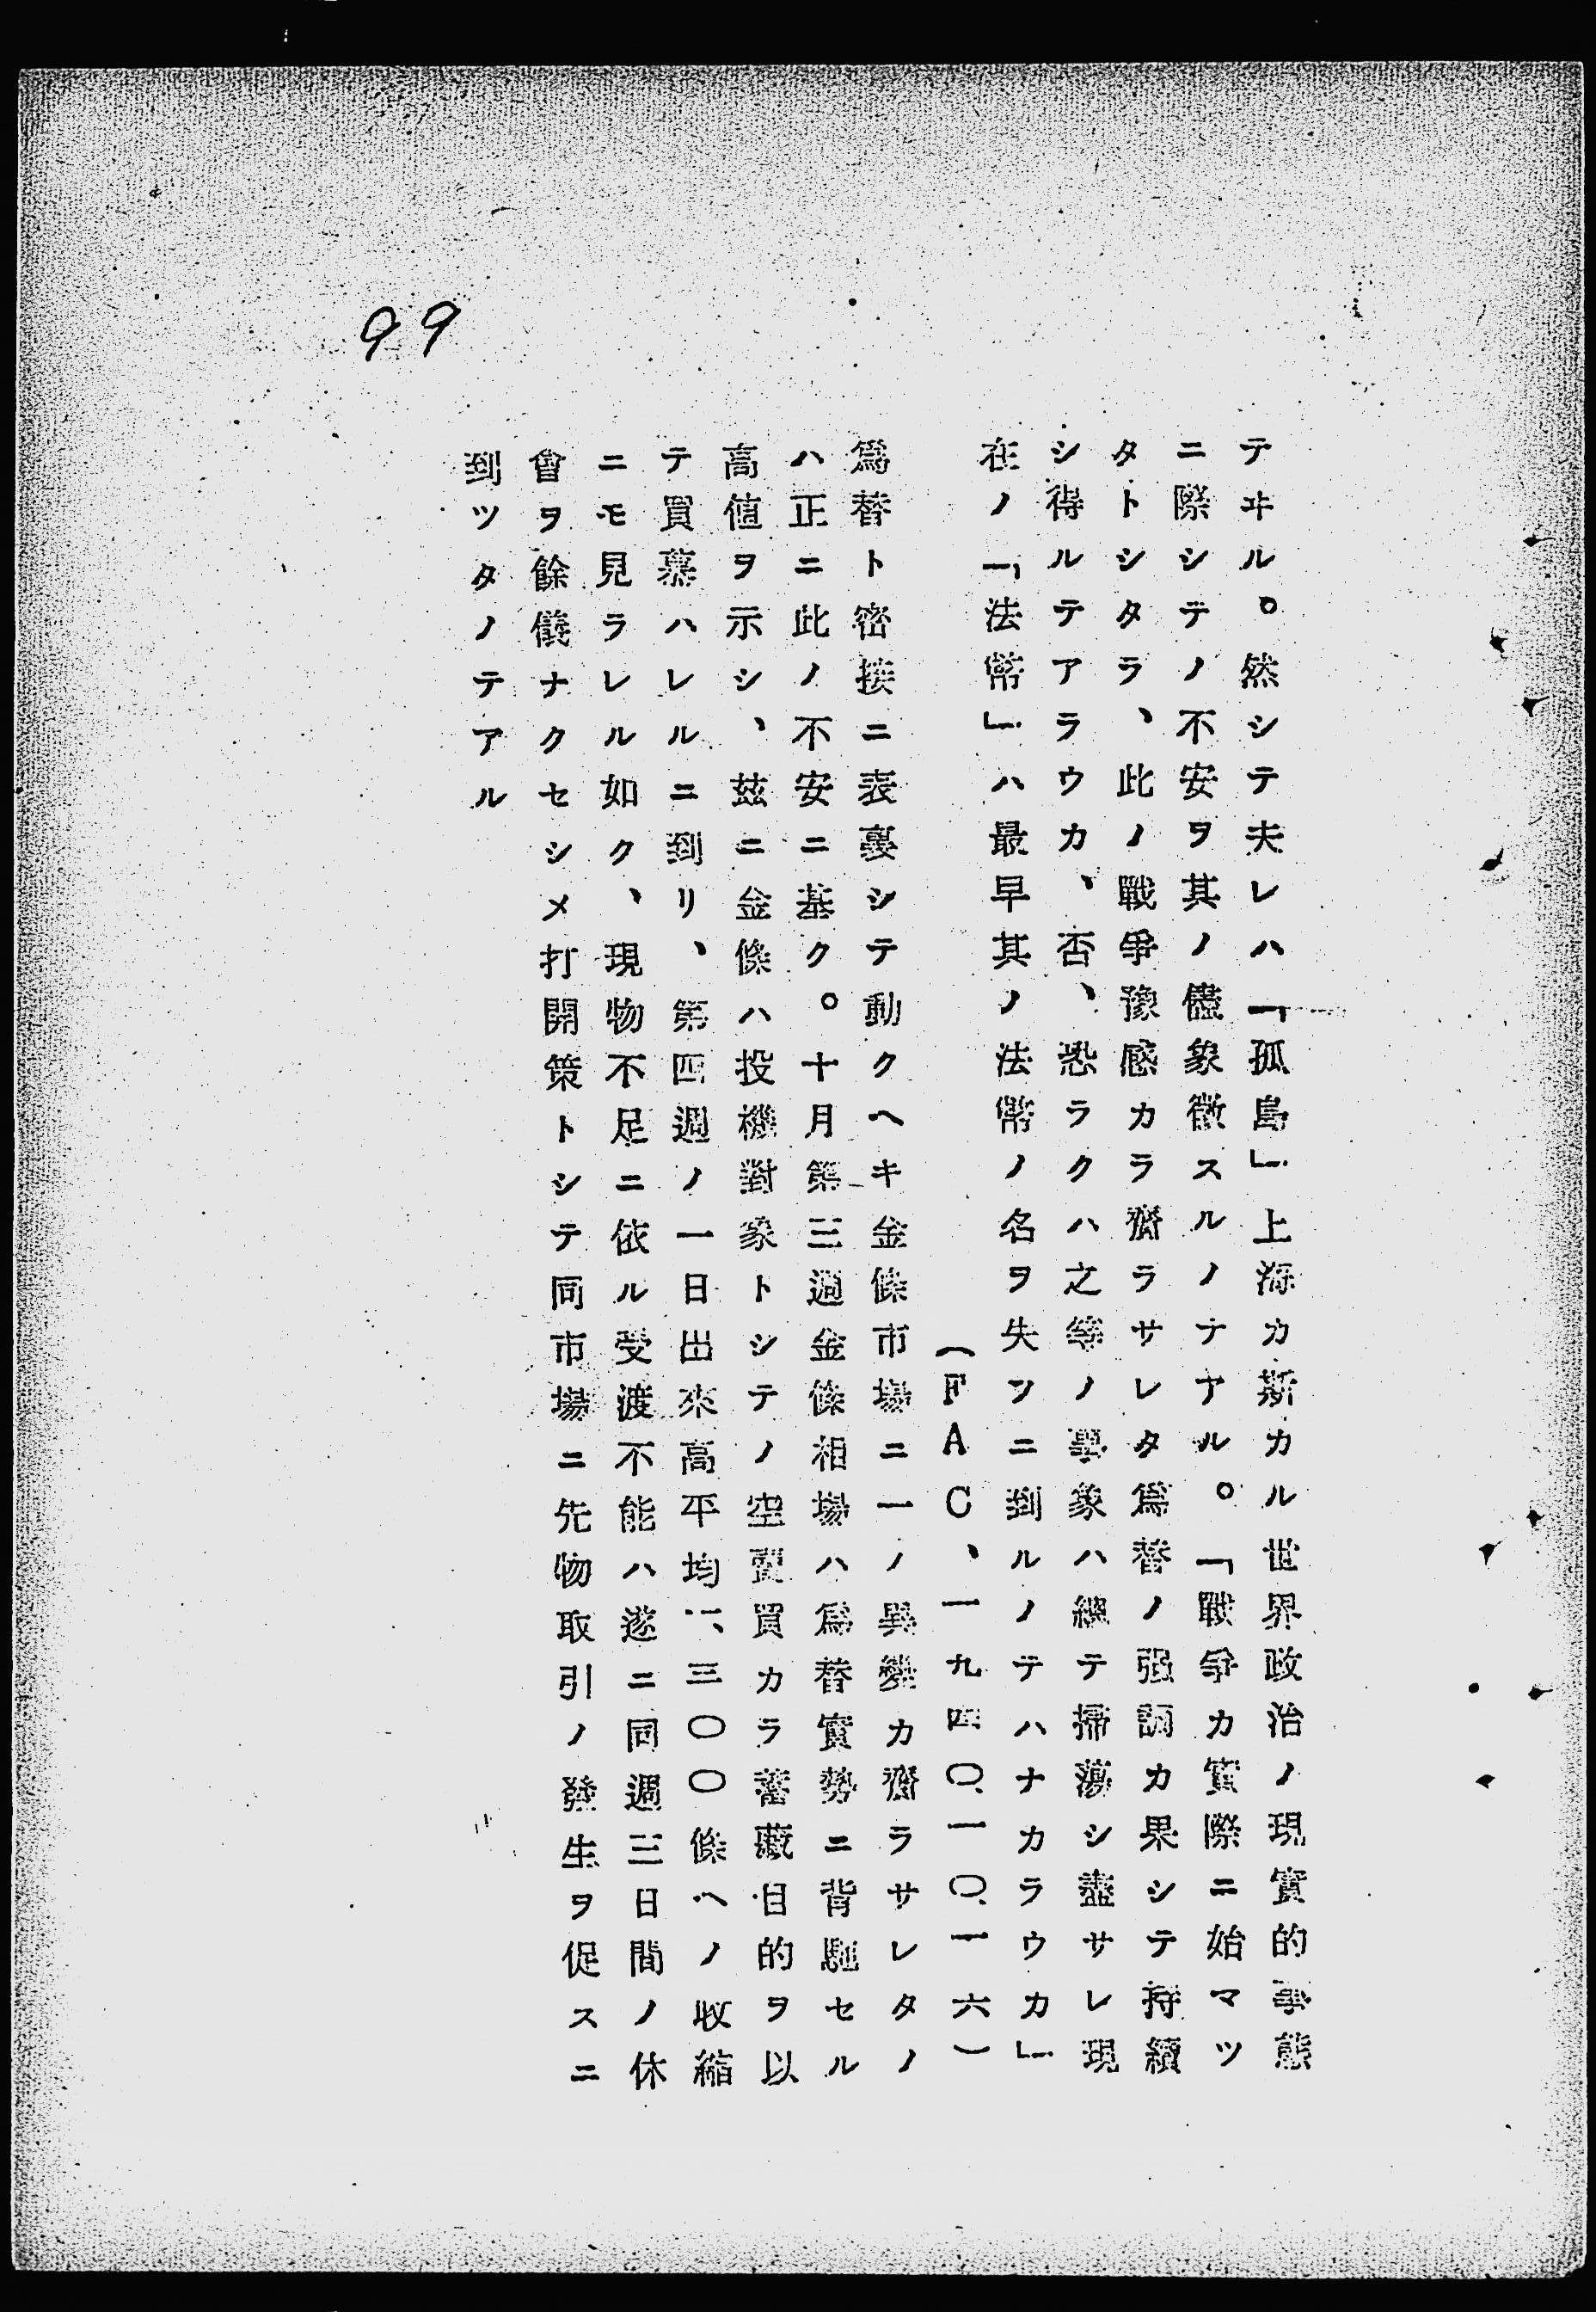 99
テヰル。然シテ夫レハ「孤島」上海カ斯カル世界政治ノ現實的事態
ニ際シテノ不安ヲ其ノ儘象徵スルノナアル。「戰爭カ實際ニ始マツ
タトシタラ、此ノ戰爭豫感カラ齎ラサレタ爲替ノ强調カ果シテ持續
シ得ルテアラウカ、否、恐ラクハ之等ノ事象ハ總テ掃蕩シ盡サレ現
在ノ「法幣」ハ最早其ノ法幣ノ名ヲ失フニ到ルノテハナカラウカ」
(FAC、一九四〇、一〇、一六)
爲替ト密接ニ表裏シテ動クヘキ金條市場ニ一ノ異變カ齎ラサレタノ
ハ正ニ此ノ不安ニ基ク。十月第三週金條相場ハ爲替實勢ニ背馳セル
高値ヲ示シ、茲ニ金條ハ投機對象トシテノ空賣買カラ蓄藏目的ヲ以
テ買慕ハレルニ到リ、第四週ノ一日出來高平均一、三〇〇條ヘノ收縮
ニモ見ラレル如ク、現物不足ニ依ル受渡不能ハ遂ニ同週三日間ノ休
會ヲ餘儀ナクセシメ打開策トシテ同市場ニ先物取引ノ發生ヲ促スニ
到ツタノテアル